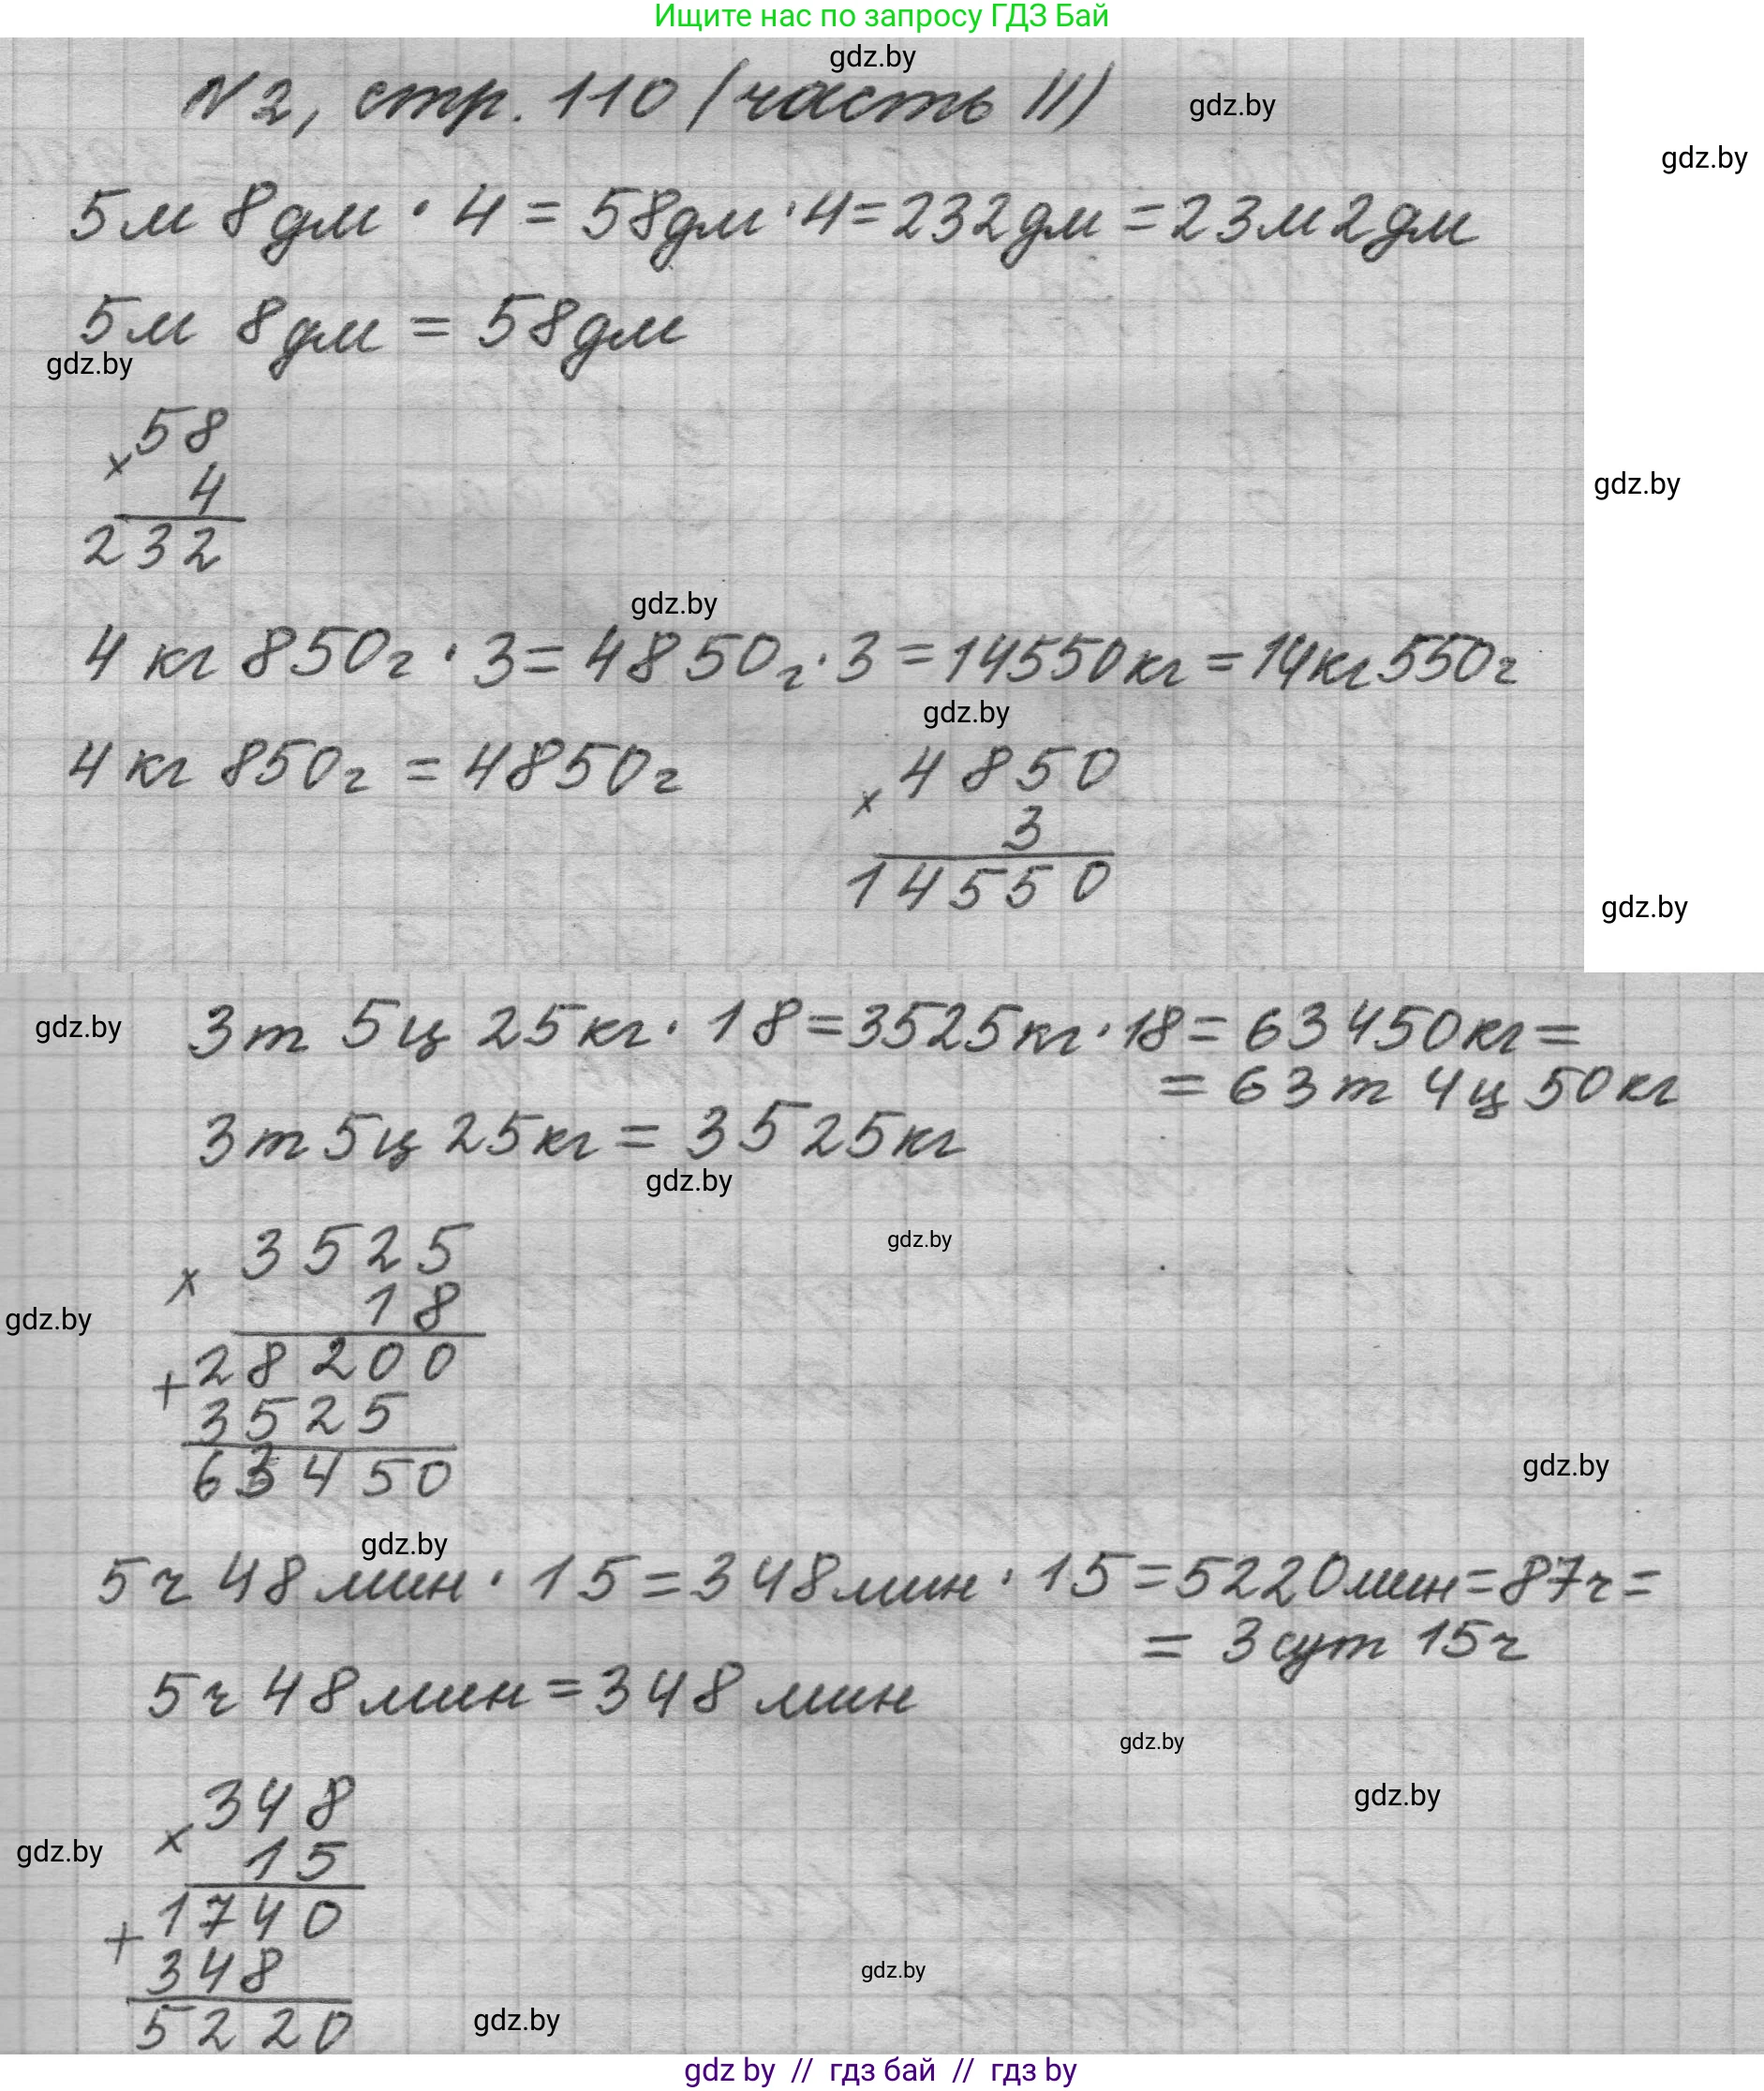 Ищите нас по запросу ГДЗ Бай
gdz.by
N 2, стр. 110 (часть II)
gdz.by
gdz.by
5м 8дм · 4 = 58дм · 4 = 232дм = 23м 2дм
5м 8дм = 58дм
gdz.by
× 58
4
232
gdz.by
gdz.by
4 кг 850г · 3 = 4850г · 3 = 14550кг = 14кг 550г
gdz.by
4 кг 850г = 4850г
× 4850
3
14550
gdz.by
gdz.by
3т 5ц 25кг · 18 = 3525кг · 18 = 63450кг =
= 63т 4ц 50кг
3т 5ц 25кг = 3525кг
gdz.by
gdz.by
× 3525
18
gdz.by
+ 28200
3525
63450
gdz.by
gdz.by
5ч 48мин · 15 = 348мин · 15 = 5220мин = 87ч =
= 3сут 15ч
5ч 48мин = 348 мин
gdz.by
gdz.by
× 348
15
gdz.by
+ 1740
348
5220
gdz.by
gdz.by
gdz by // гдз бай // гдз by